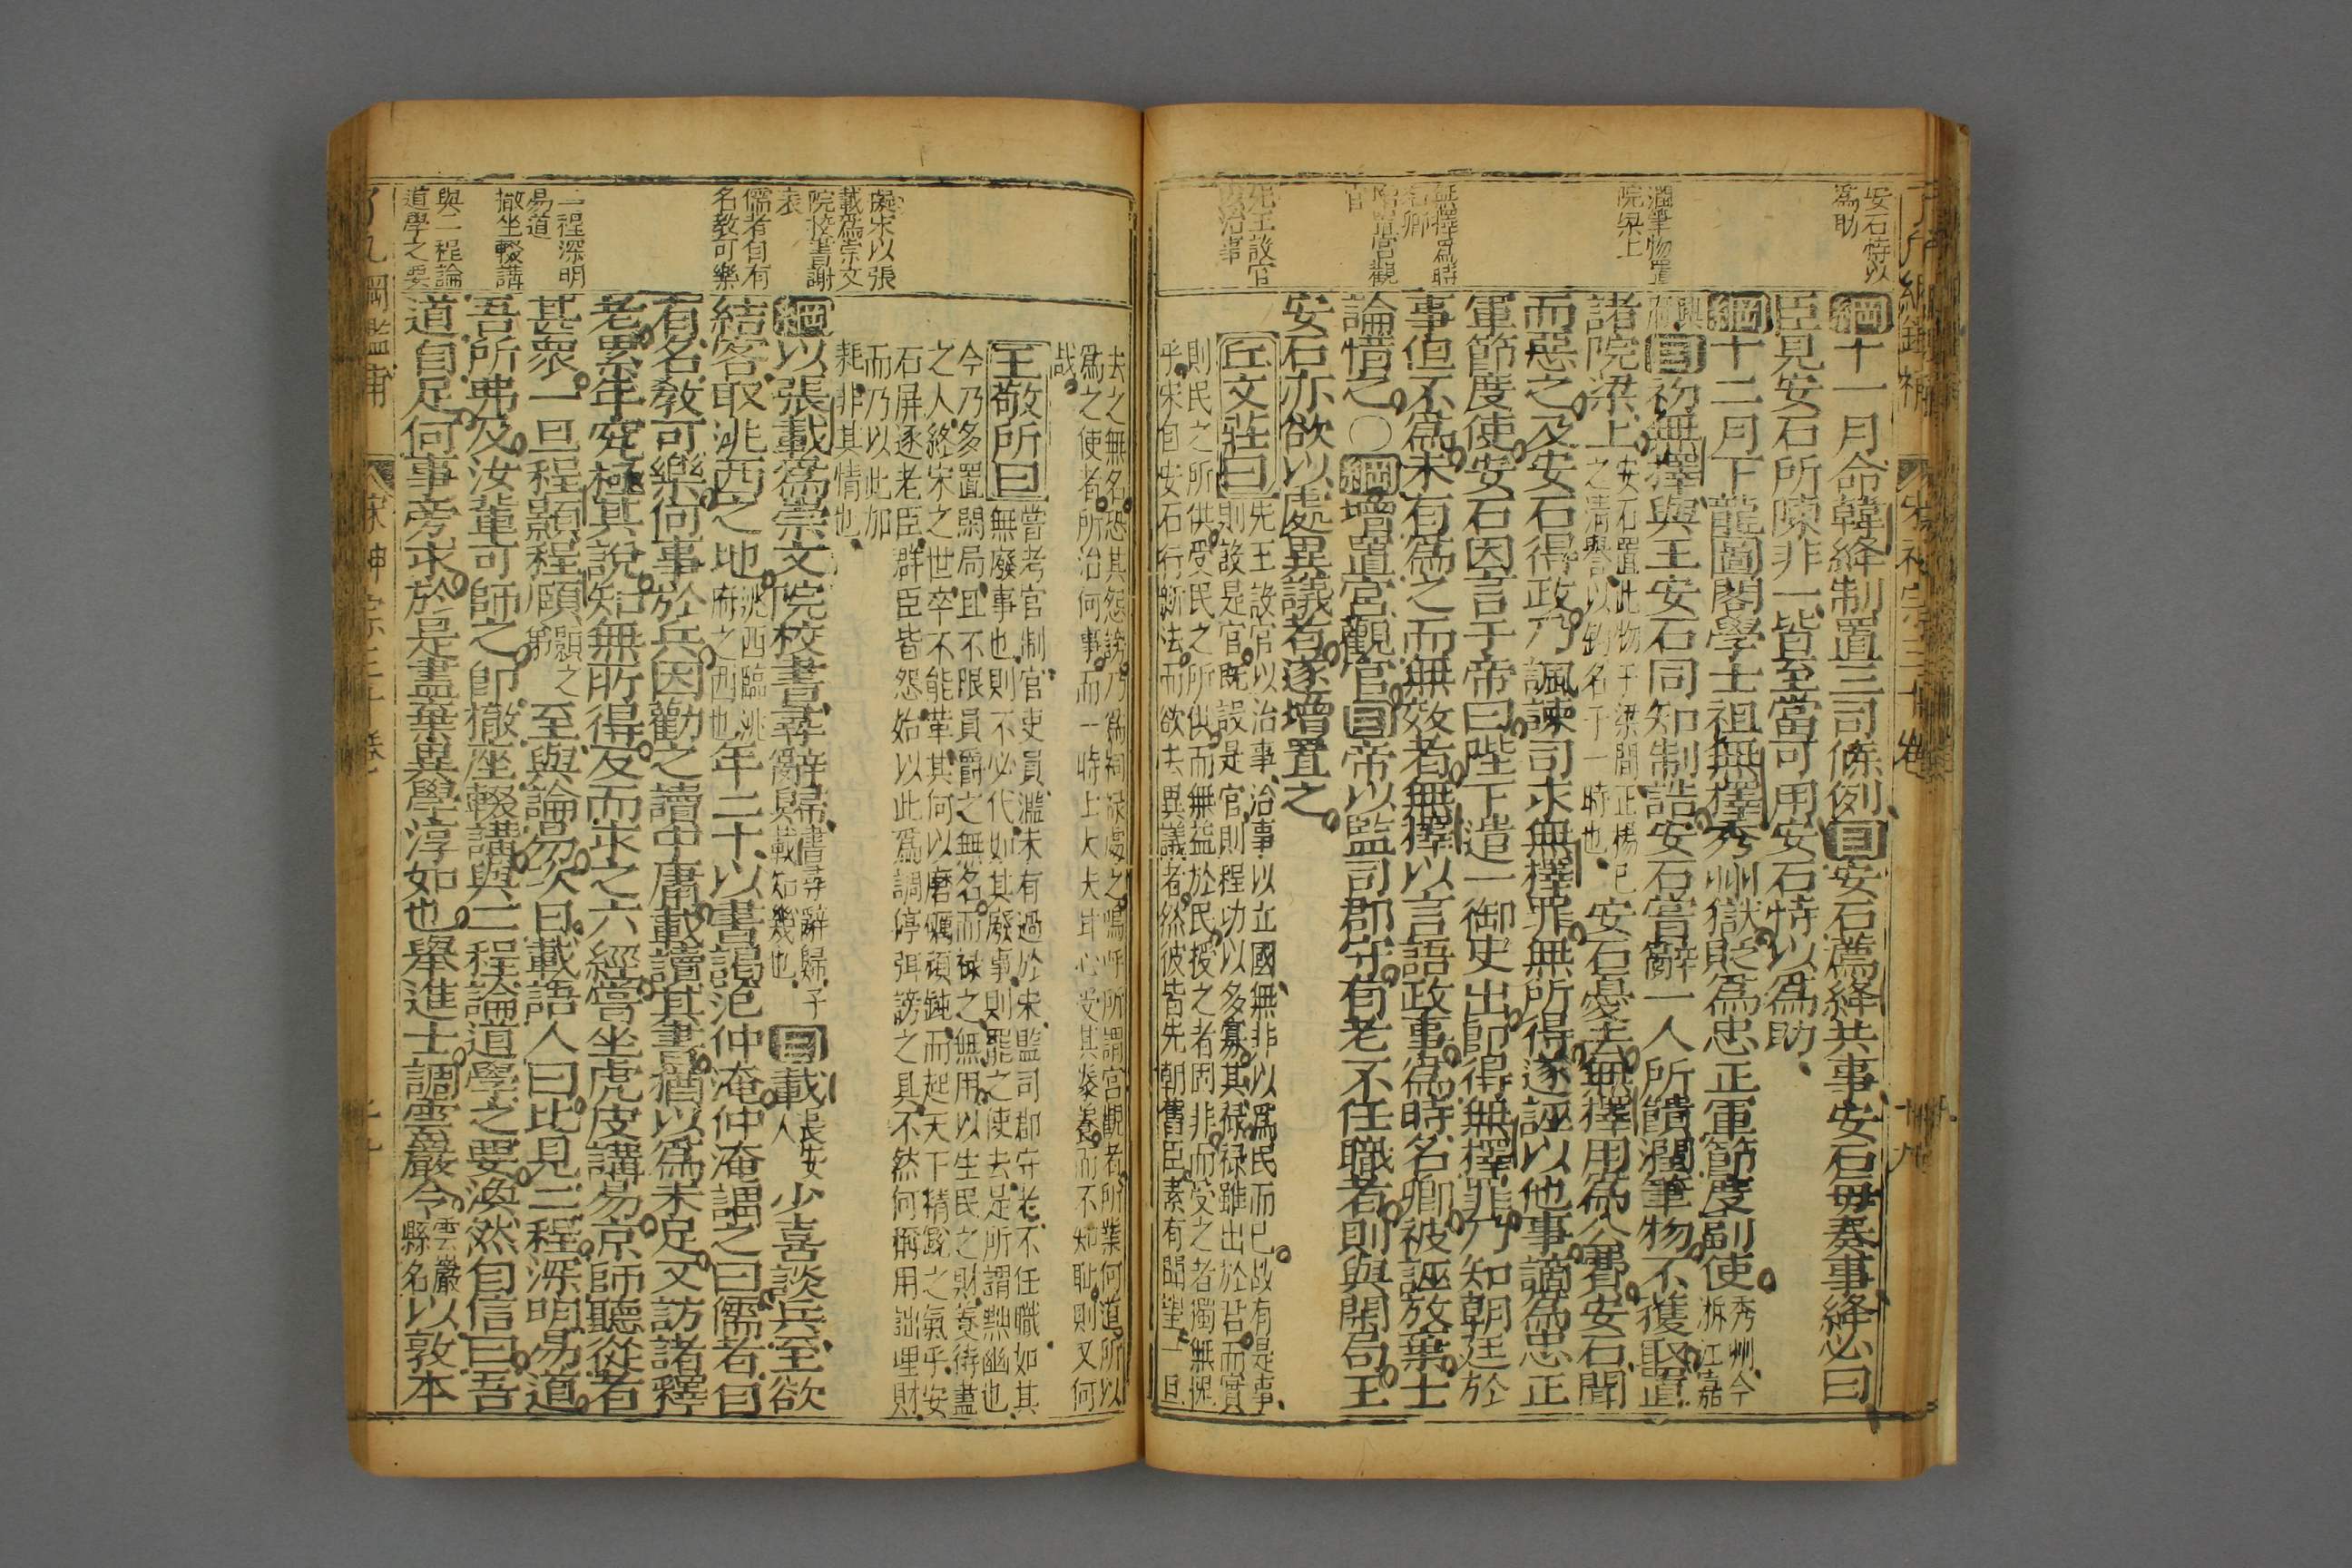 安石恃以
爲助
潤筆物置
院梁上
無擇爲時
名卿
增置宮觀
官
先王設官
以治事
綱十一月命韓絳制置三司條例目安石薦絳共事安石每奏事絳必曰
臣見安石所陳非一皆至當可用安石恃以爲助
綱十二月下龍圖閣學士祖無擇秀州獄貶爲忠正軍節度副使秀州今
浙江嘉
興
府目初無擇與王安石同知制誥安石嘗辭一人所饋潤筆物不獲取置
諸院梁上安石置此物于梁間正楊己
之清譽以釣名于一時也安石憂去無擇用爲公費安石聞
而惡之及安石得政乃諷諫司求無擇罪無所得遂誣以他事謫爲忠正
軍節度使安石因言于帝曰陛下遣一御史出卽得無擇罪乃知朝廷於
事但不爲未有爲之而無效者無擇以言語政事爲時名卿被誣放棄士
論惜之○綱增置宮觀官目帝以監司郡守有老不任職者則與閑局王
安石亦欲以處異議者遂增置之
丘文莊曰先王設官以治事治事以立國無非以爲民而已故有是事
則設是官既設是官則程功以多寡其祿祿雖出於君而實
則民之所供受民之所供而無益於民授之者固非而受之者獨無愧
乎宋自安石行新法而欲去異議者然彼皆先朝舊臣素有聞望一旦
去之無名恐其怨謗乃爲祠祿處之嗚呼所謂宮觀者所業何道所以
爲之使者所治何事而一時士大夫甘心受其豢養而不知恥則又何
哉
王敬所曰嘗考官制官吏員濫未有過於宋監司郡守老不任職如其
無廢事也則不必代如其廢事則罷之使去是所謂黜幽也
今乃多置閑局且不限員爵之無名而祿之無用以生民之財養待盡
之人終宋之世卒不能革其何以磨礪頑鈍而起天下精銳之氣乎安
石屏逐老臣群臣皆怨始以此爲調停弭謗之具不然何稱用詘理財
而乃以此加
耗非其情也
擬宋以張
載爲崇文
院校書謝
表
儒者自有
名教可樂
二程深明
易道
撤坐輟講
與二程論
道學之要
綱以張載爲崇文院校書尋辭歸書尋辭歸子
爰與載知幾也目載長安
人少喜談兵至欲
結客取洮西之地洮西臨洮
府之西也年二十以書謁范仲淹仲淹謂之曰儒者自
有名教可樂何事於兵因勸之讀中庸載讀其書猶以爲未足又訪諸釋
老累年究極其說知無所得反而求之六經嘗坐虎皮講易京師聽從者
甚衆一旦程顥程頤顥之
弟至與論易次日載語人曰比見二程深明易道
吾所弗及汝輩可師之卽撤座輟講與二程論道學之要渙然自信曰吾
道自足何事旁求於是盡棄異學淳如也舉進士調雲巖令雲巖
縣名以敦本
了凡綱鑑補
宋神宗